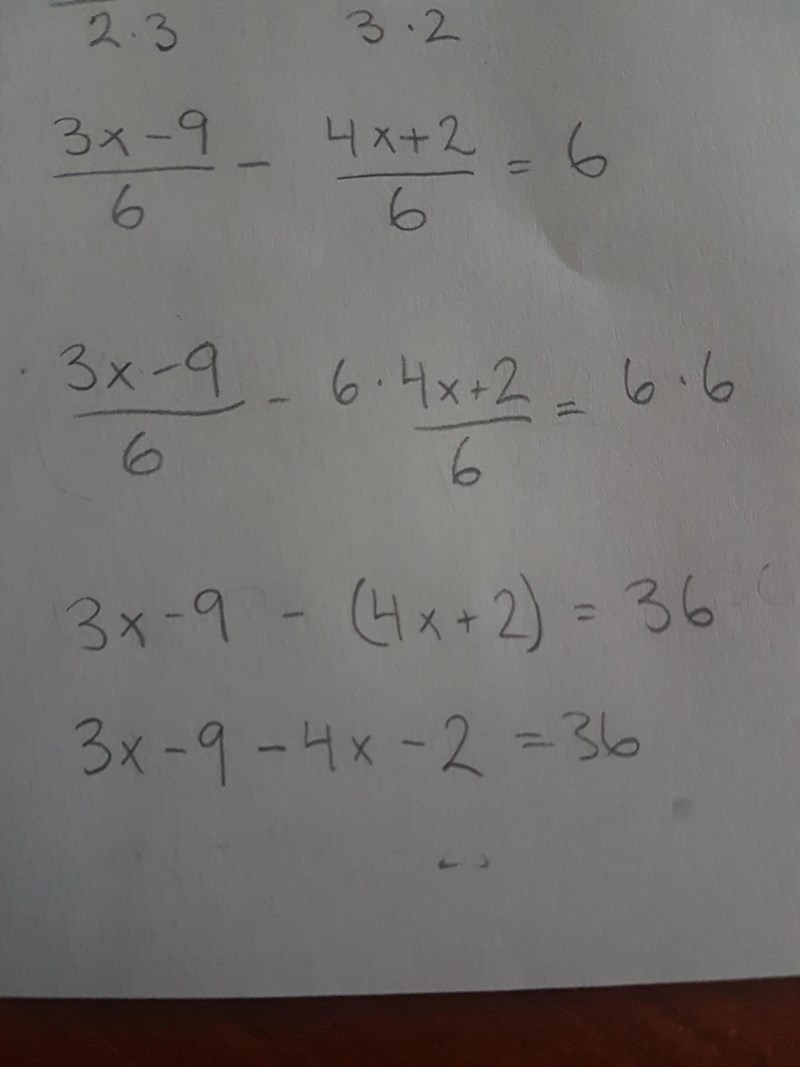 2·3 3·2
3x-9/6 - 4x+2/6 = 6
· 3x-9/6 - 6·4x+2/6 = 6·6
3x-9 - (4x+2) = 36
3x-9-4x-2 = 36